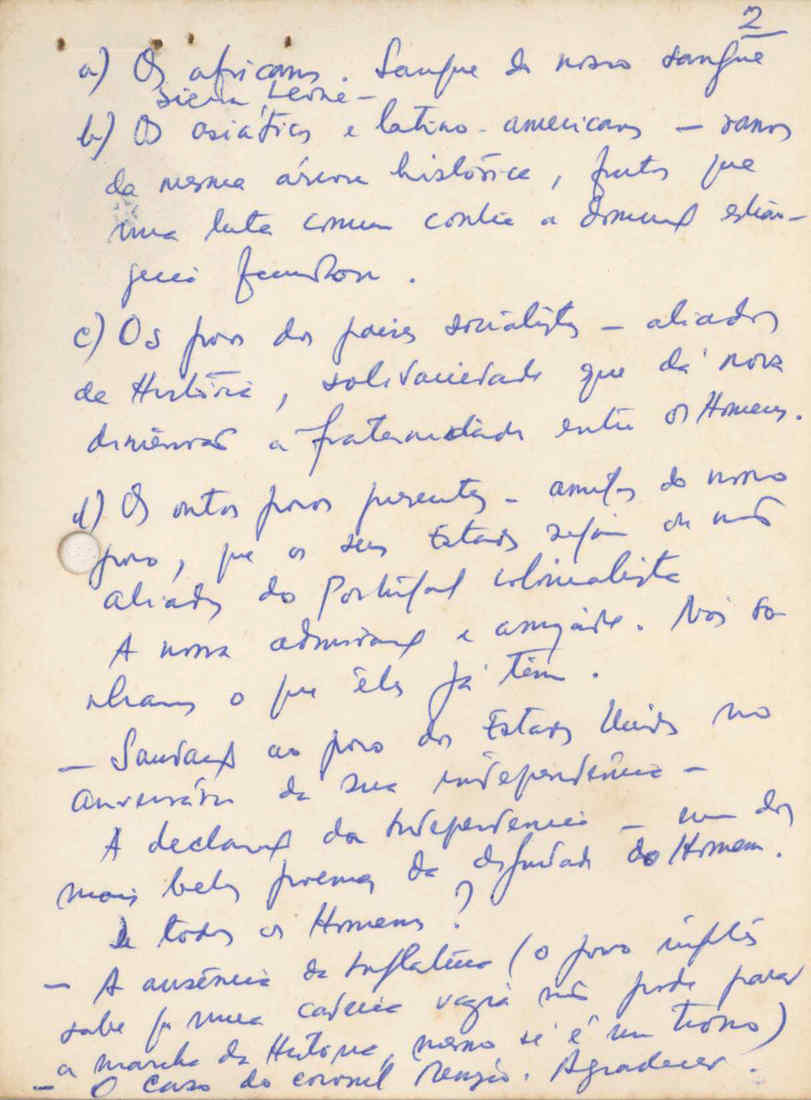 2
a) Os africanos. Sangue do nosso sangue
Sierra Leone -
b) Os asiáticos e latino-americanos — ramos
da mesma árvore histórica, frutos que
uma luta comum contra a dominação estran-
geira
c) Os povos dos países socialistas — aliados
da História, solidariedade que dá nova
dimensão a fraternidade entre os Homens.
d) Os outos povos presentes — amigos do nosso
povo, que os seus Estados sejam ou não
aliados do Portugal colonialista
A nossa admiração e amizade. Nós so-
nhamos o que êles já têm.
— Saudação ao povo dos Estados Unidos no
aniversário da sua independência —
A declaração da Independencia — um dos
mais belos poemas da dignidade do Homem.
De todos os Homens?
— A ausência da Inglaterra (o povo inglês
sabe q uma cadeira vazia não pode parar
a marcha da História, mesmo se é um trono)
— O caso do coronel. Agradecer.